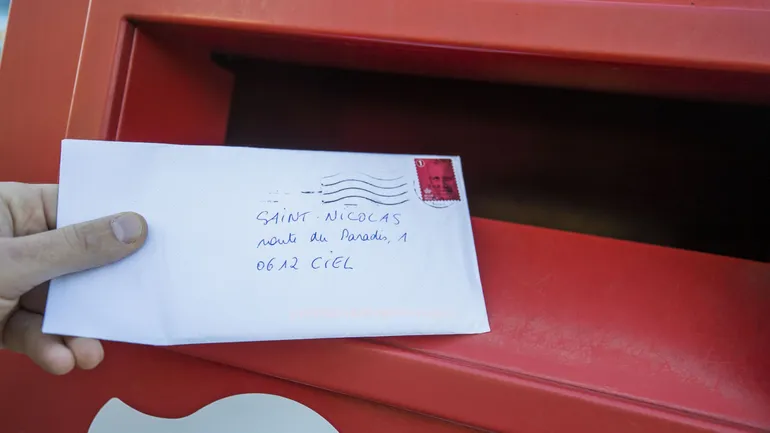 1
SAINT-NICOLAS
route du Paradis, 1
0612 CIEL